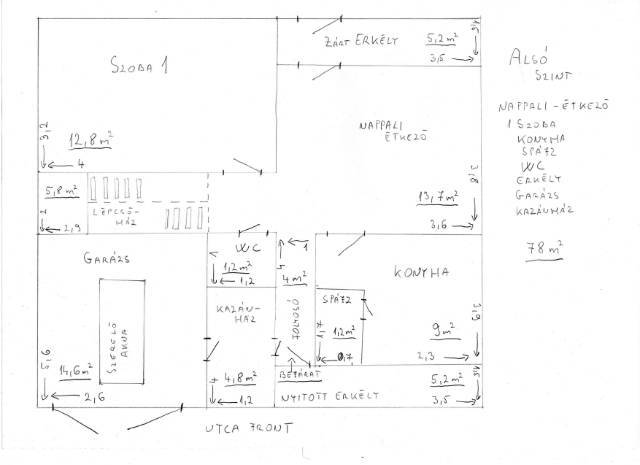 SZOBA 1
ZÁRT ERKÉLY
5,2 m²
1,5
3,5
NAPPALI
ÉTKEZŐ
3,2
12,8 m²
4
5,8 m²
2
2,9
LÉPCSŐ-
HÁZ
3,8
13,7 m²
3,6
GARÁZS
SZERELŐ
AKNA
5,6
14,6 m²
2,6
WC
1
1,2 m²
1,2
1
4 m²
FOLYOSÓ
KAZÁN-
HÁZ
4
4,8 m²
1,2
KONYHA
SPÁJZ
1,7
1,2 m²
0,7
3,9
9 m²
2,3
BEJÁRAT
NYITOTT ERKÉLY
5,2 m²
1,5
3,5
UTCA FRONT
ALSÓ
SZINT
NAPPALI - ÉTKEZŐ
1 SZOBA
KONYHA
SPÁJZ
WC
ERKÉLY
GARÁZS
KAZÁNHÁZ
78 m²